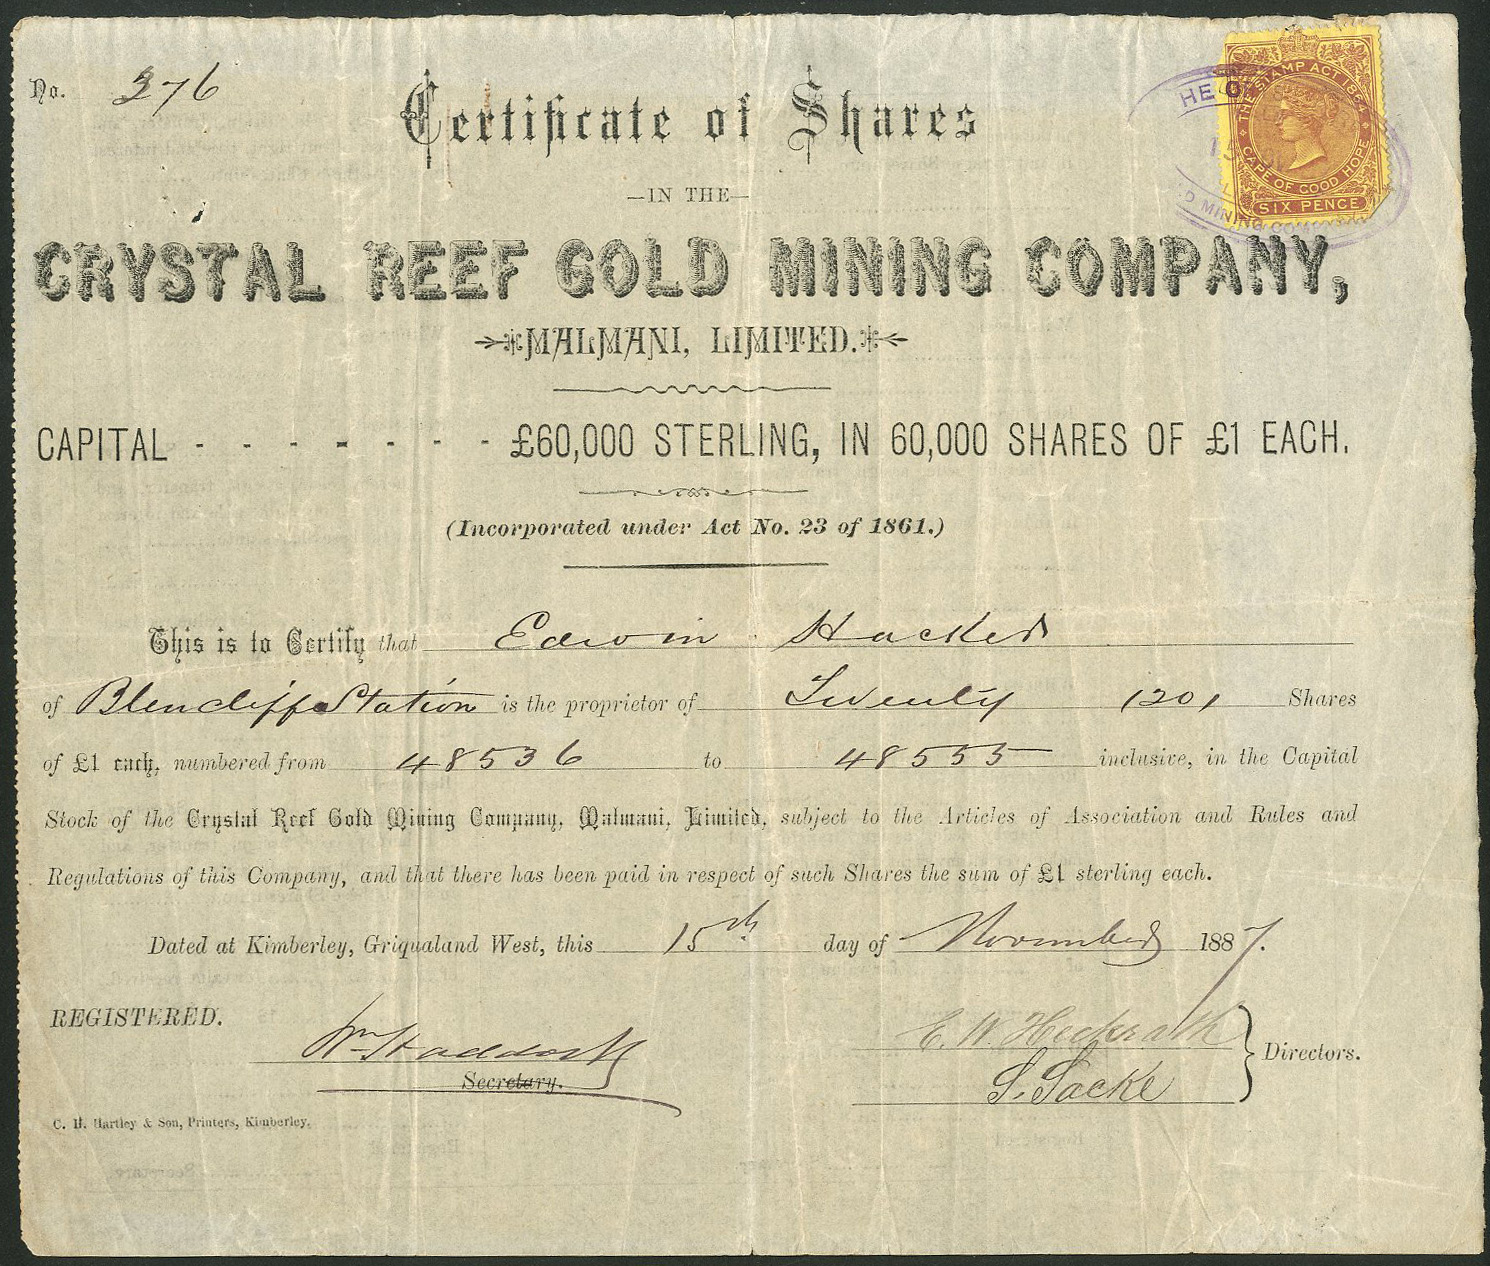 No. 376
Certificate of Shares
—IN THE—
CRYSTAL REEF GOLD MINING COMPANY,
MALMANI, LIMITED.
CAPITAL - - - - - - - £60,000 STERLING, IN 60,000 SHARES OF £1 EACH.
(Incorporated under Act No. 23 of 1861.)
This is to Certify that Edwin Hacker
of Blencliffe Station is the proprietor of Twenty (20) Shares
of £1 each, numbered from 48536 to 48555 inclusive, in the Capital
Stock of the Crystal Reef Gold Mining Company, Malmani, Limited, subject to the Articles of Association and Rules and
Regulations of this Company, and that there has been paid in respect of such Shares the sum of £1 sterling each.
Dated at Kimberley, Griqualand West, this 15th day of November 1887.
REGISTERED.
Secretary.
Directors.
C. H. Hartley & Son, Printers, Kimberley.
THE STAMP ACT 1864
CAPE OF GOOD HOPE
SIX PENCE